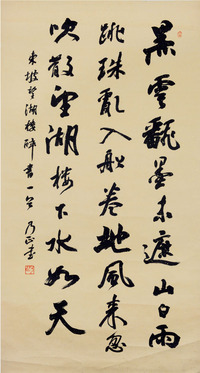 黑雲翻墨未遮山白雨
跳珠亂入船卷地風來忽
吹散望湖樓下水如天
東坡望湖樓醉書一 乃正書